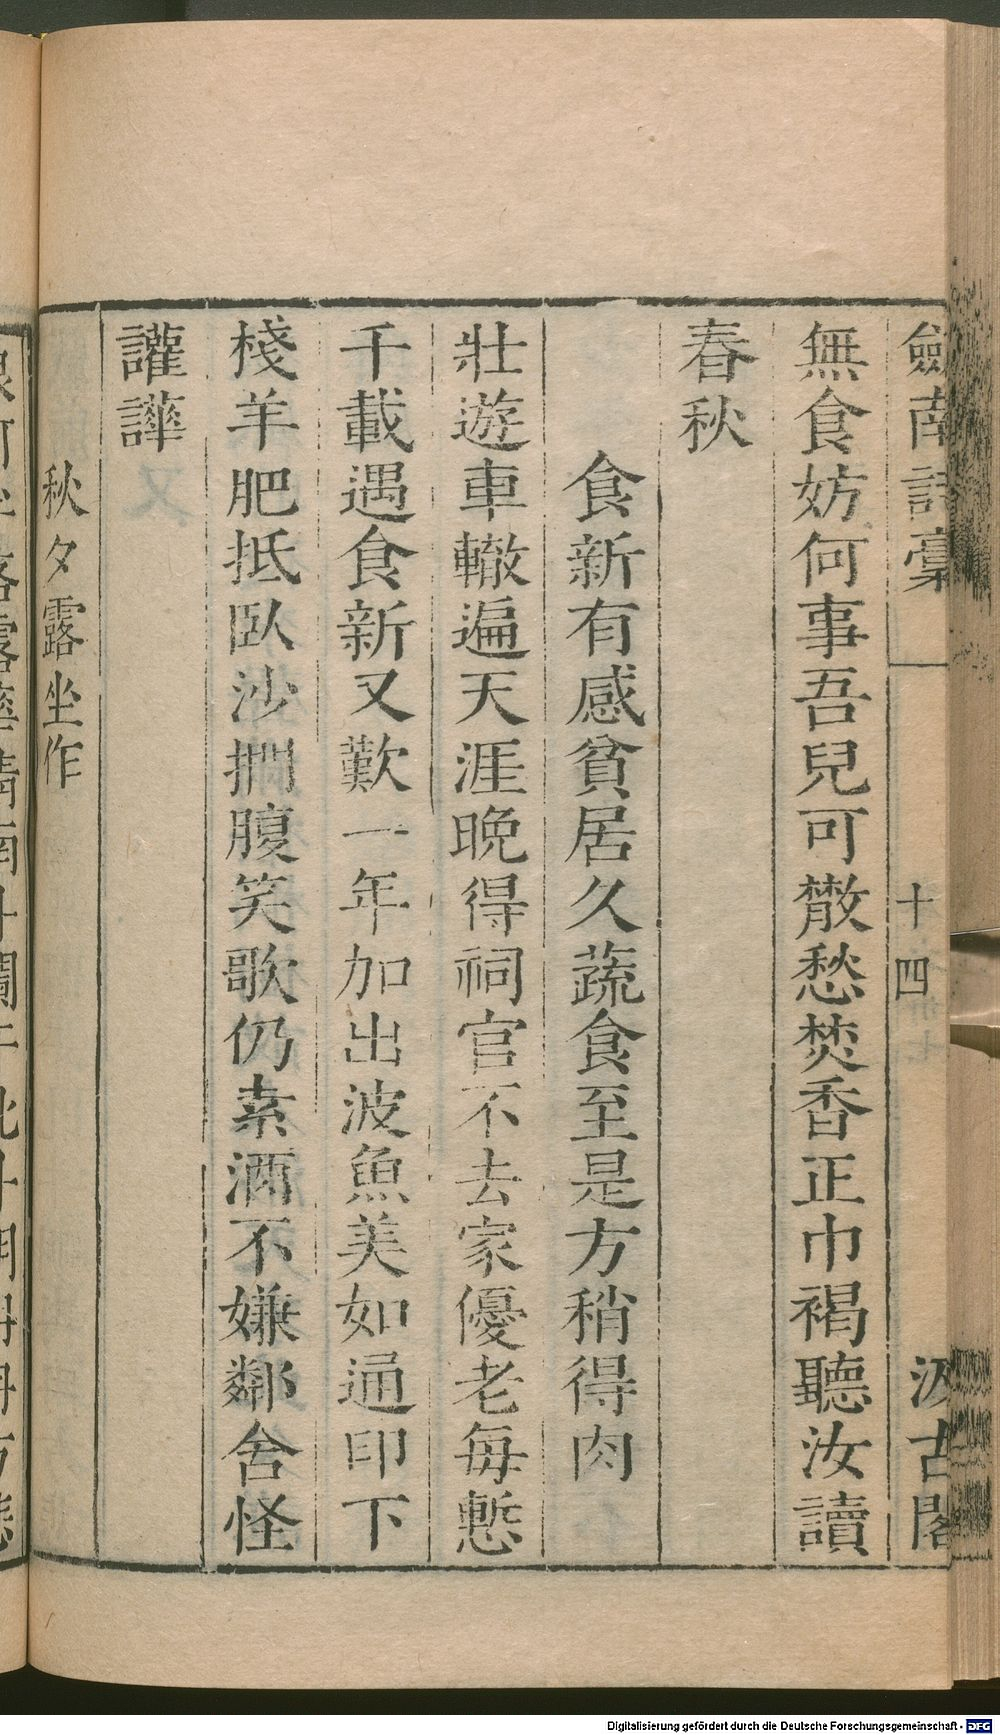 劒南詩稾　十四　汲古閣
無食妨何事吾兒可散愁焚香正巾褐聽汝讀
春秋
食新有感貧居久蔬食至是方稍得肉
壯遊車轍遍天涯晚得祠官不去家優老每慙
千載遇食新又歎一年加出波魚美如通印下
棧羊肥抵臥沙捫腹笑歌仍索酒不嫌鄰舍怪
讙譁
秋夕露坐作
Digitalisierung gefördert durch die Deutsche Forschungsgemeinschaft - DFG